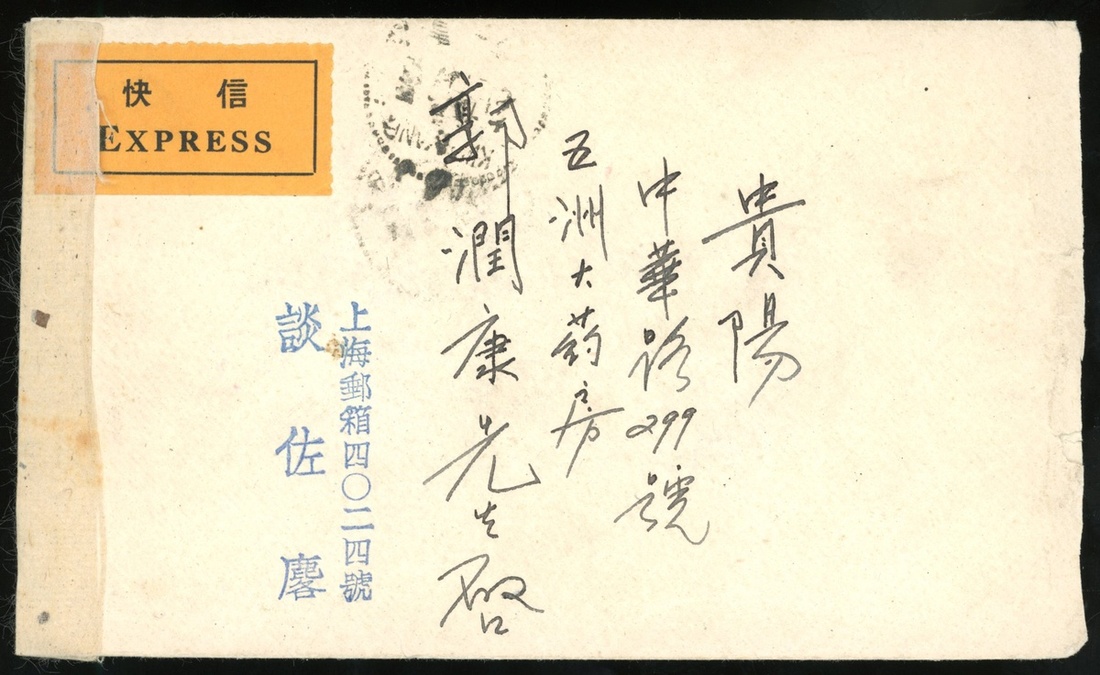 快信
EXPRESS
貴陽
中華路299號
五洲大药房
郭潤康先生啓
上海郵箱四〇二四號
談佐麐